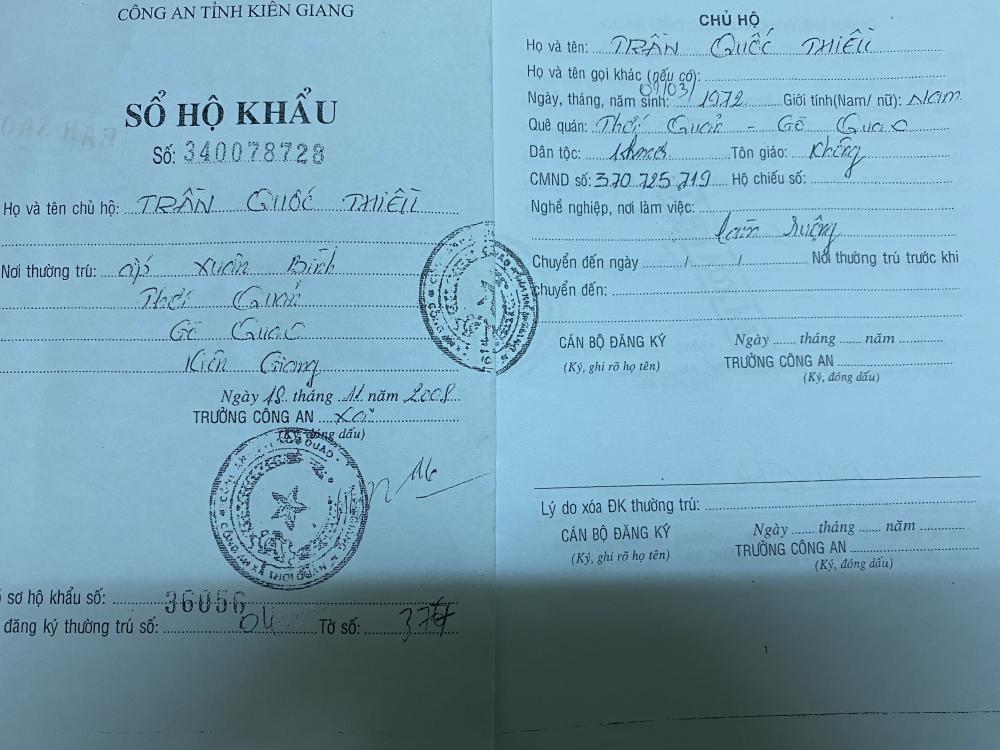 CÔNG AN TỈNH KIÊN GIANG
SỔ HỘ KHẨU
Số: 340078728
Họ và tên chủ hộ: TRẦN QUỐC THIỀU
Nơi thường trú: ấp Xuân Bình
Thới Quản
Gò Quao
Kiên Giang
Ngày 18 tháng 11 năm 2008
TRƯỞNG CÔNG AN Xã
(Ký, đóng dấu)
sơ hộ khẩu số: 36056
đăng ký thường trú số: 04 Tờ số:
CHỦ HỘ
Họ và tên: TRẦN QUỐC THIỀU
Họ và tên gọi khác (nếu có):
Ngày, tháng, năm sinh: 07/03/1972 Giới tính(Nam/ nữ): Nam
Quê quán: Thới Quản - Gò Quao
Dân tộc: Khmer Tôn giáo: Không
CMND số: 370.725.719 Hộ chiếu số:
Nghề nghiệp, nơi làm việc:
Làm ruộng
Chuyển đến ngày / / Nơi thường trú trước khi
chuyển đến:
CÁN BỘ ĐĂNG KÝ
(Ký, ghi rõ họ tên)
Ngày tháng năm
TRƯỞNG CÔNG AN
(Ký, đóng dấu)
Lý do xóa ĐK thường trú:
CÁN BỘ ĐĂNG KÝ
(Ký, ghi rõ họ tên)
Ngày tháng năm
TRƯỞNG CÔNG AN
(Ký, đóng dấu)
1